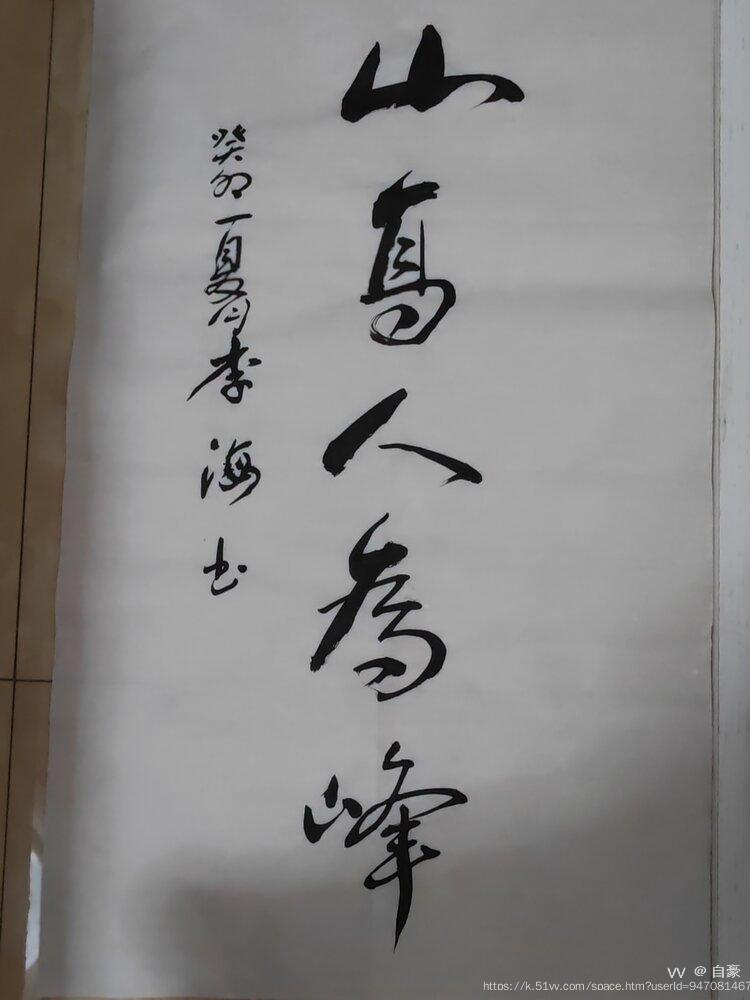 山高人為峰
癸卯夏月李海书
VV @ 自豪
https://k.51vv.com/space.htm?userId=947081467